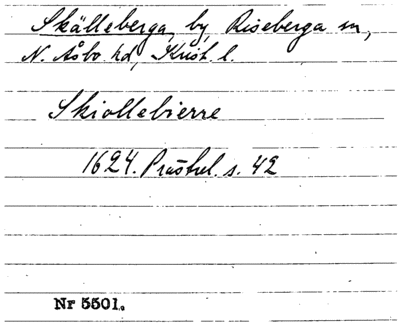 Skälleberga, by, Riseberga sn,
N. Åsbo hd, Krist. l.
Skiollebierre
1624. Prästrel. s. 42
Nr 5501.